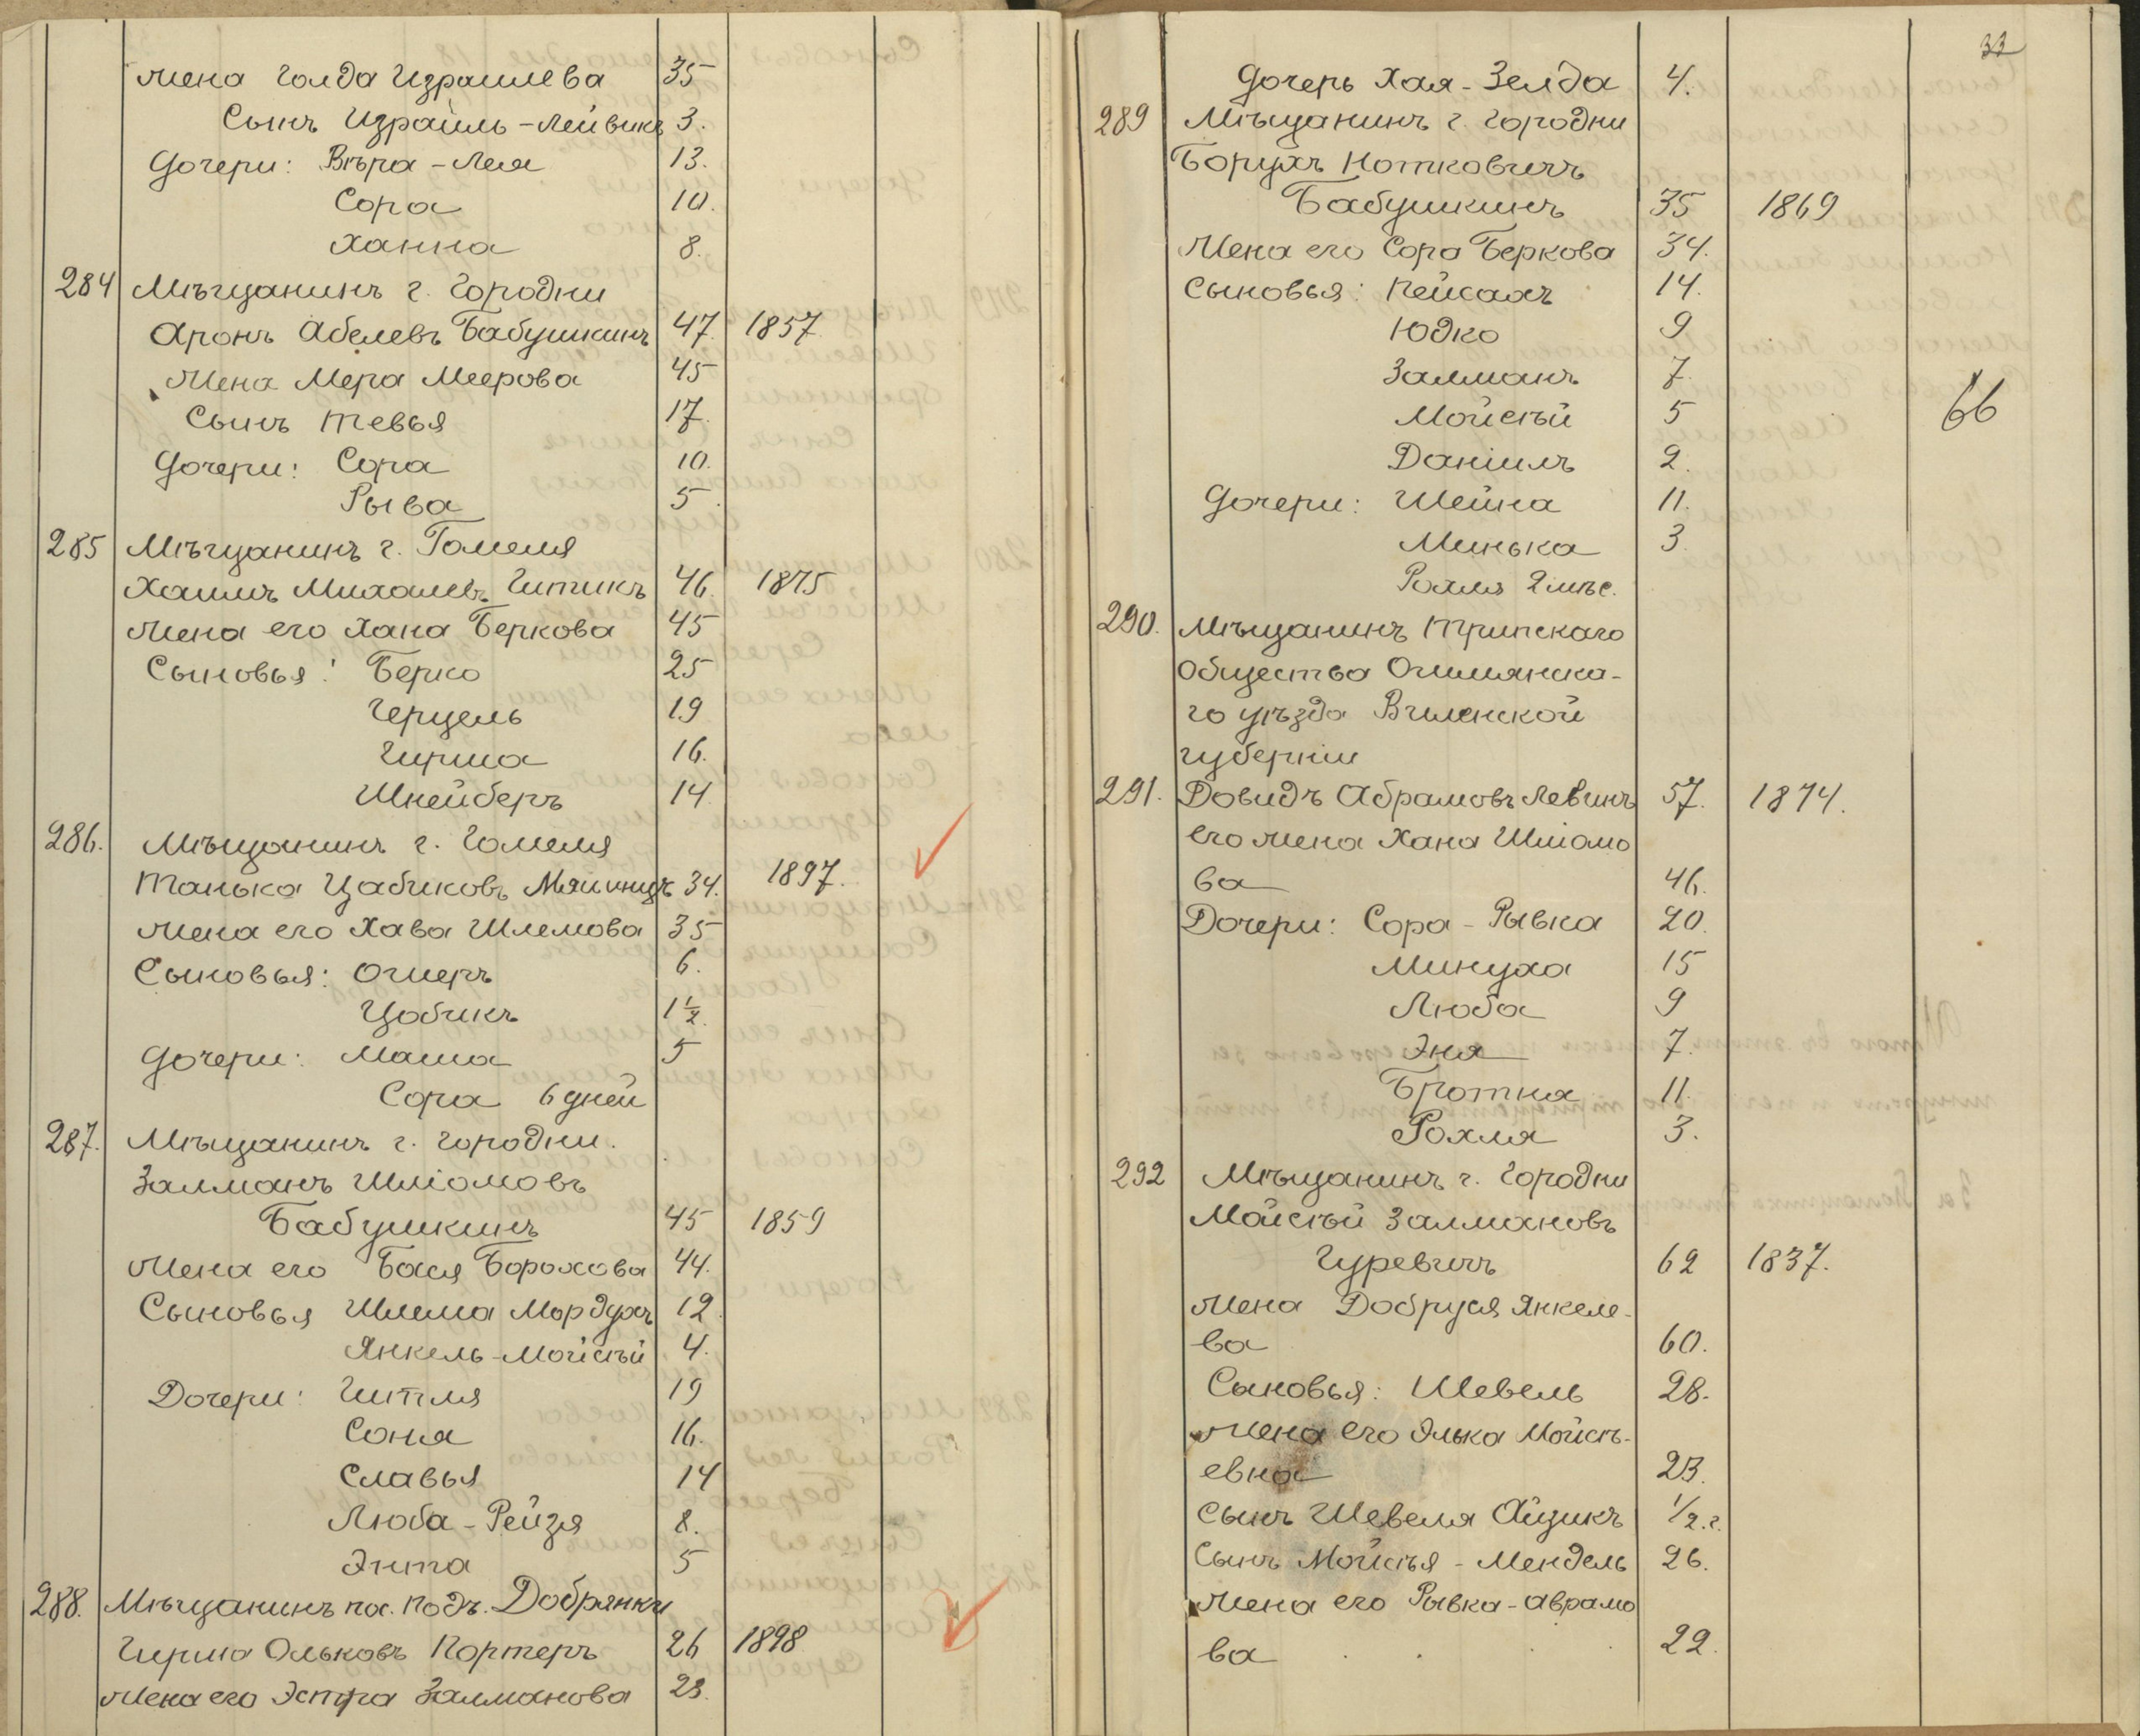 Жена Голда Израилева 35
Сынъ Израиль-Лейвикъ 3.
Дочери: Вѣра-Лея 13.
Сора 10.
Ханна 8.
284 Мѣщанинъ г. Городни
Аронъ Абелевъ Бабушкинъ 47. 1857
Жена Мера Меерова 45
Сынъ Тевья 17.
Дочери: Сора 10.
Рыва 5
285 Мѣщанинъ г. Гомеля
Хаимъ Михалевъ Гитикъ 46. 1875
Жена его Хана Беркова 45
Сыновья: Берко 25
Герцель 19
Гирша 16.
Шнейберъ 14
286. Мѣщанинъ г. Гомеля
Танька Цабиковъ 34. 1897.
Жена его Хава Шлемова 35
Сыновья: Ошеръ 6.
Цобикъ 1½.
Дочери: Маша 5
Сора 6 дней
287. Мѣщанинъ г. Городни.
Залманъ Шліомовъ
Бабушкинъ 45 1859
Жена его Бася Борохова 44.
Сыновья Шлема Мордухъ 12.
Янкель-Мойсѣй 4.
Дочери: Гитля 19
Соня 16.
Славья 14
Люба-Рейзя 8.
Энта 5
288. Мѣщанинъ пос. Подъ. Добрянки
Гирша Ольковъ Портеръ 26 1898
Жена его Эстра Залманова 23.
33
Дочерь Хая-Зелда 4.
289 Мѣщанинъ г. Городни
Борухъ Нотковичъ
Бабушкинъ 35 1869
Жена его Сора Беркова 34.
Сыновья: Пейсахъ 14.
Юдко 9
Залманъ 7.
Мойсѣй 5
66
Даніилъ 2.
Дочери: Шейна 11.
Минька 3.
Рохля 2 мѣс.
290. Мѣщанинъ Трипскаго
Общества Ошмянска-
го уѣзда Виленской
губерніи
291. Довидъ Абрамовъ Левинъ 57. 1874.
его жена Хана Шліомо
ва 46.
Дочери: Сора-Рывка 20.
Минуха 15
Люба 9
Эня 7.
Бротна 11.
Рохля 3.
292 Мѣщанинъ г. Городни
Мойсѣй Залмановъ
Гуревичъ 62 1837.
Жена Добруся Янкеле-
ва 60.
Сыновья: Шевель 28.
Жена его Элька Мойсѣ-
евна 23.
Сынъ Шевеля Айзикъ 1/2.г.
Сынъ Мойсѣя-Мендель 26.
Жена его Рывка-Аврамо
ва 22.